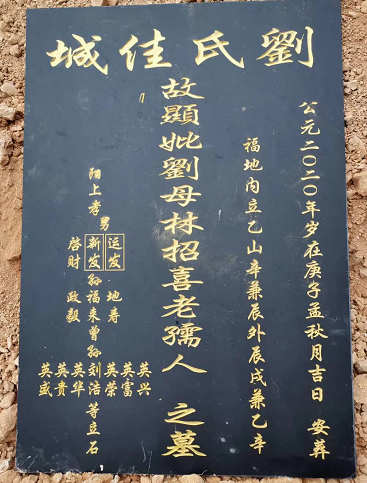 劉氏佳城
公元二〇二〇年岁在庚子孟秋月吉日 安葬
福地内立乙山辛兼辰外辰戌兼乙辛
故顯妣劉母林招喜老孺人 之墓
英兴
英富
男 运发 地寿 英荣
阳上孝 新发 孙福来曾孙刘浩等立石
啓财 政毅 英华
英贵
英盛